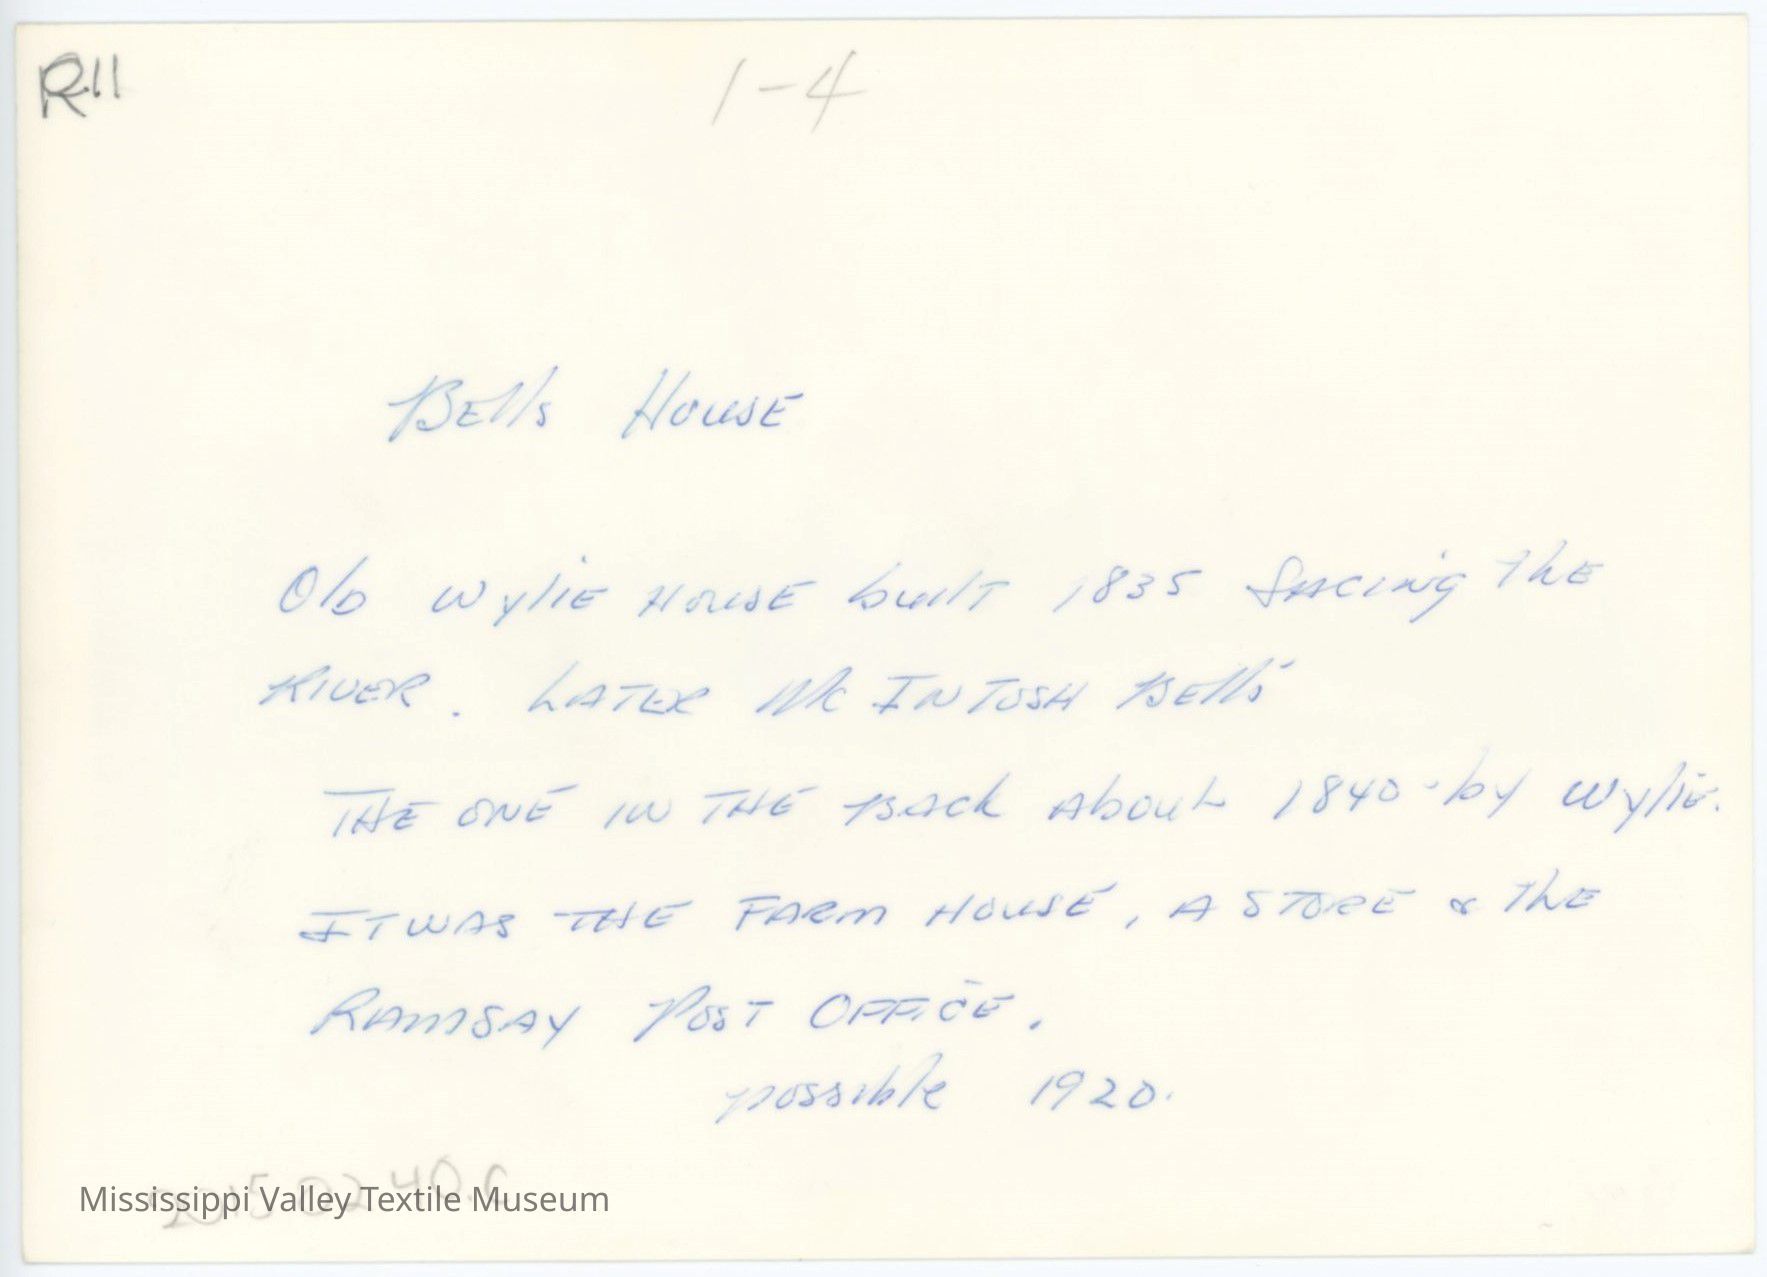 R11
1-4
Bells House
Old Wylie House built 1835 facing the
River. Later McIntosh Bells
The one in the Back about 1840 - by Wylie.
It was the Farm House, a Store & the
Ramsay Post Office.
possible 1920.
2015.02.40.C
Mississippi Valley Textile Museum